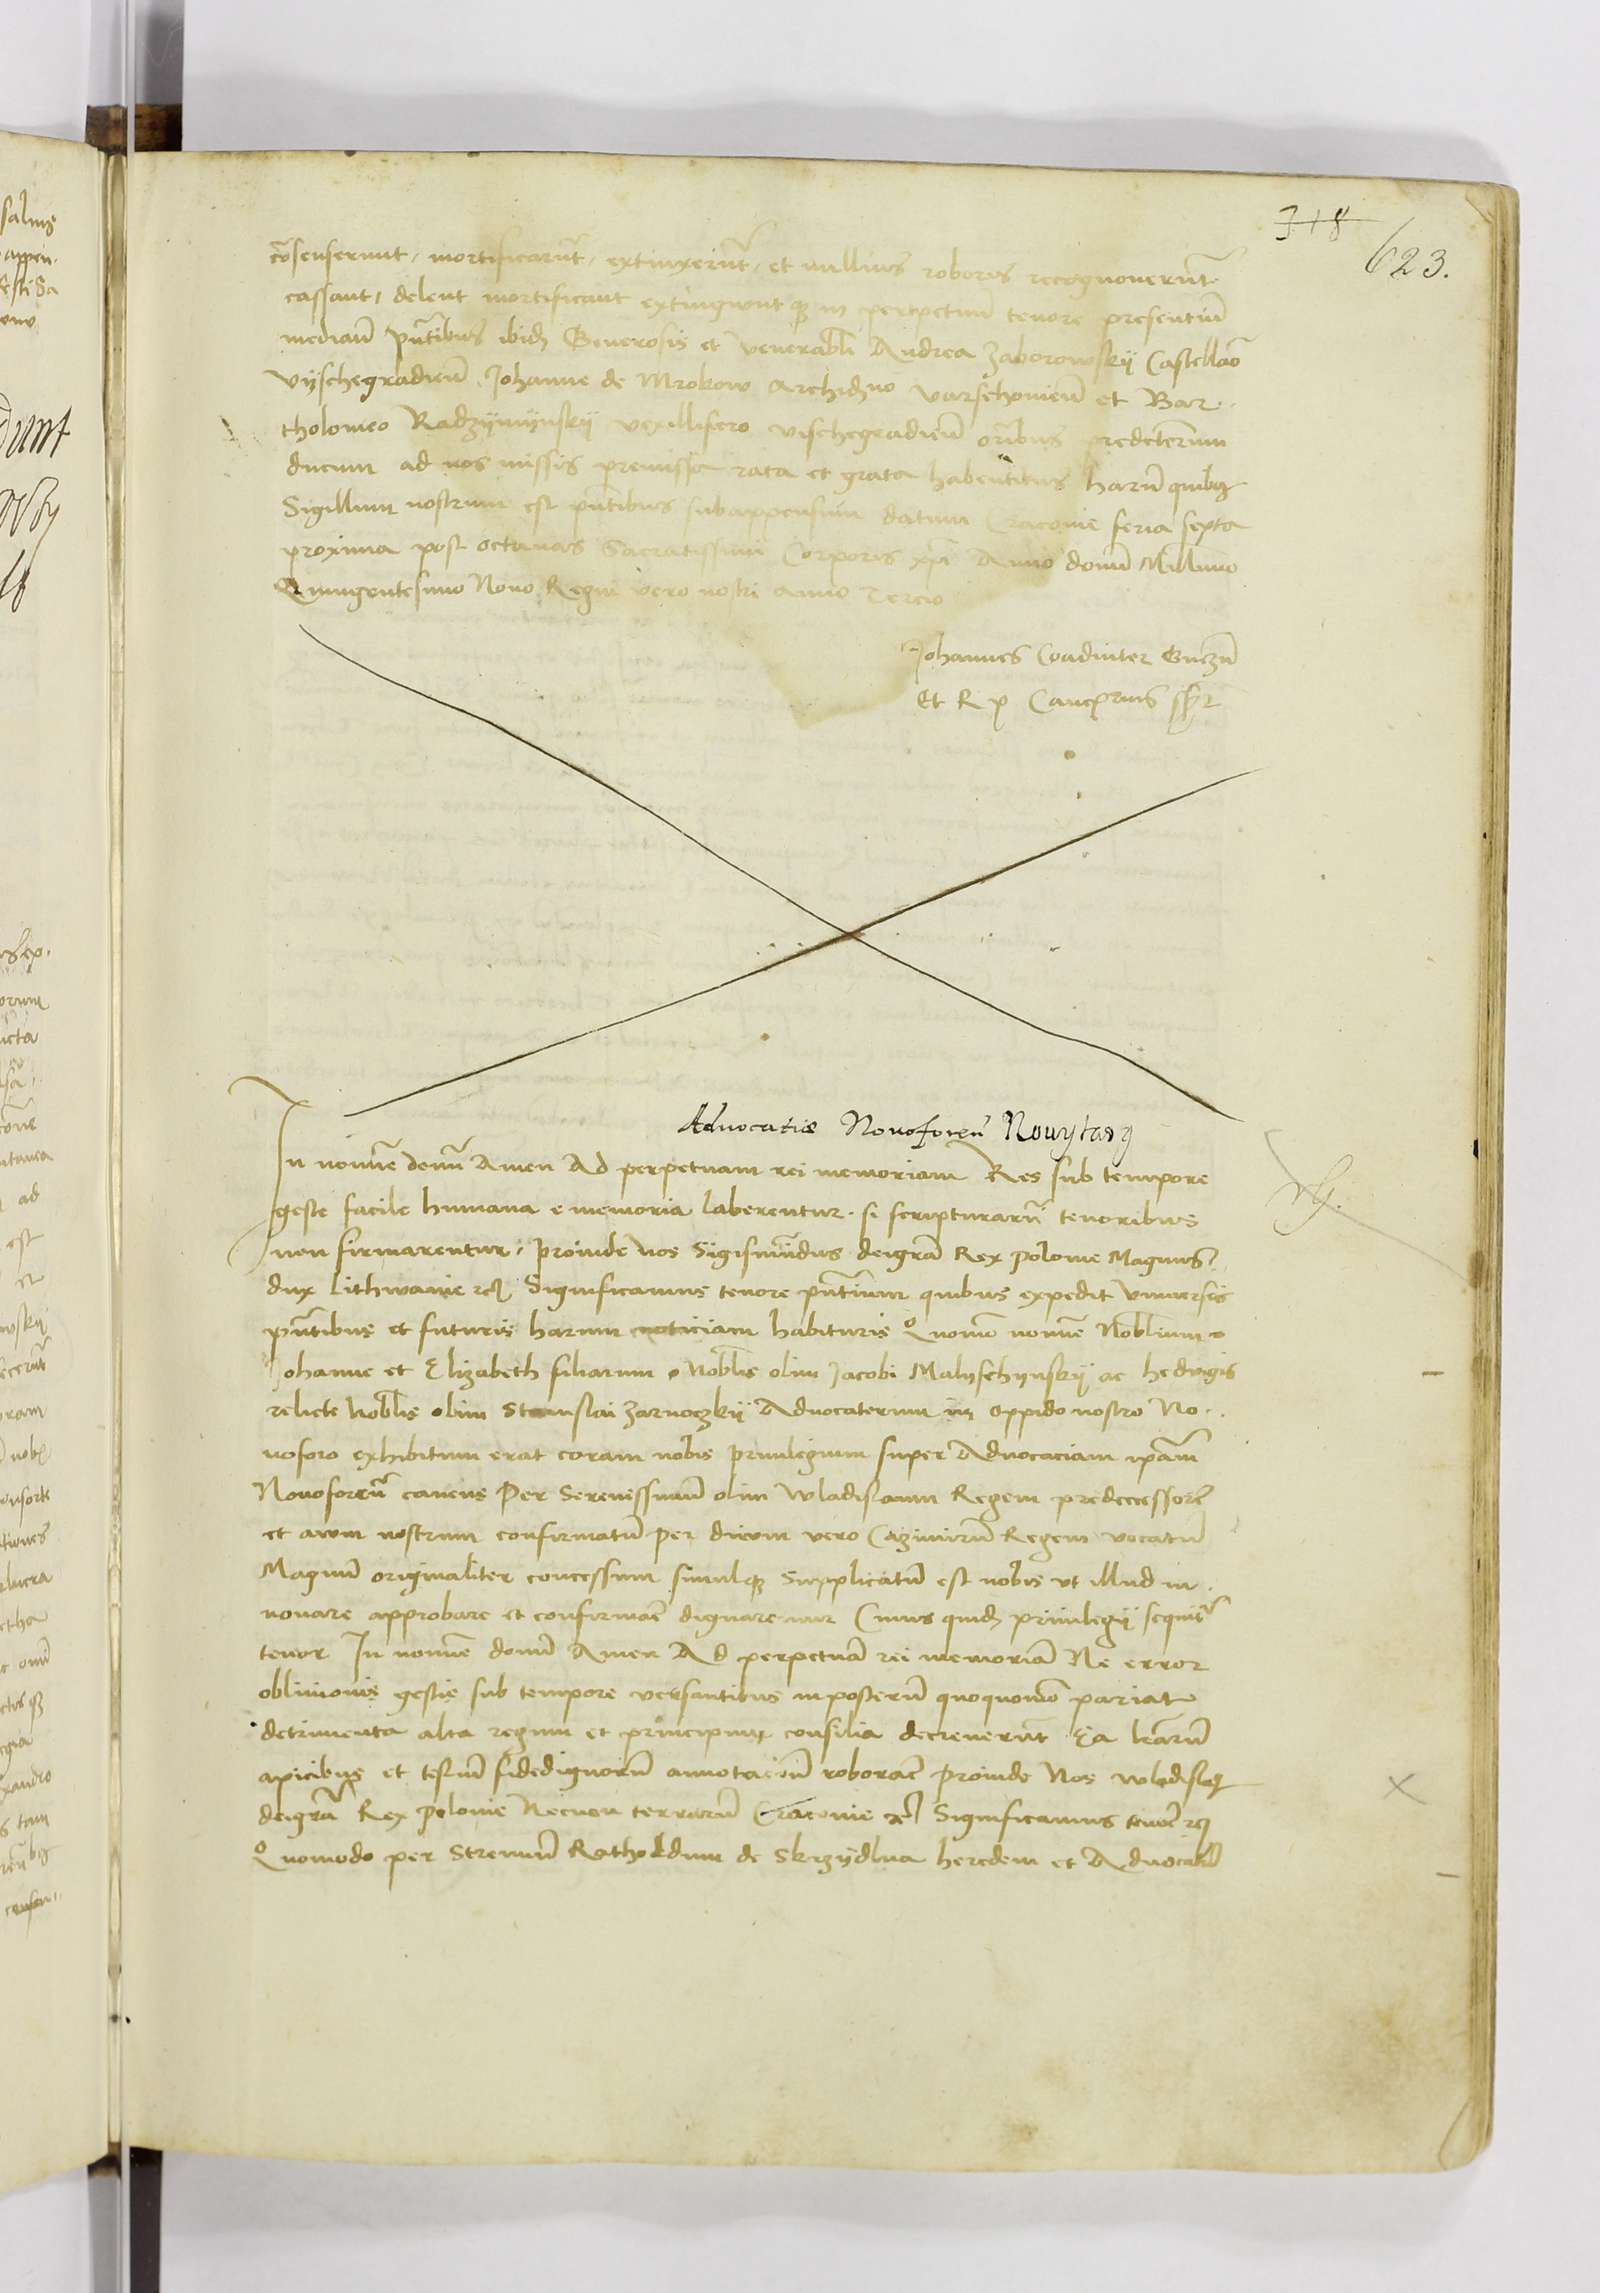 318
623.
cõsenserunt, mortificarũt, extinxerũt, et nullius roboris recognouerũt
cassant, delent mortificant extingwunt qȝ in perpetuum tenore presentiũ
mediañ pñtibus ibidȝ Generosis et venerabĩl Andrea Zaborowskÿ Castellaõ
Vÿschegradieñ. Johanne de Mrokow Archidno varschouieñ et Bar-
tholomeo Radzÿmÿnskÿ vexillifero vischegradieñ orĩbus predictorum
ducum ad nos missis premissa rata et grata habentibus harũ quibȝ
Sigillum nostrum est pñtibus subappensum datum Cracouie feria sexta
proxima post octauas Sacratissimi Corporis xp̃i Anno domĩ Millimo
Quingentesimo Nono Regni vero nostri anno Tercio
Johannes Coadiutor Gneznẽ
Et R p Cancrius sp̃t
Aduocatie Nouoforeñ Nouytarg
In nomĩe domĩ Amen Ad perpetuam rei memoriam Res sub tempore
geste facile humana e memoria laberentur. si scripturarũ tenoribus
non firmarentur. Proinde nos Sigismũdus dei grã Rex polonie Magnus
dux Lithwanie rcȝ Significamus tenore pñtium quibus expedit vniuersis
pñtibus et futuris harum noticiam habituris Quomõ nomĩe Nobilium
Johanne et Elizabeth filiarum Nobĩlis olim Jacobi Malÿschÿnskÿ ac hedwigis
relicte Nobĩlis olim Stanislai Zarnoczkÿ Aduocatorum in oppido nostro No-
uoforo exhibitum erat coram nobis priuilegium super Aduocaciam ipam̃
Nouoforeñ canens Per Serenissimũ olim Wladislaum Regem predecessorẽ
et auum nostrum confirmatũ per diuum vero Cazimirũ Regem vocatũ
Magnũ originaliter concessum simulqȝ Supplicatũ est nobis vt illud in-
nouare approbare et confirmare dignaremur Cuius quidȝ priuilegÿ sequitr̃
tenor In nomĩe domĩ Amen Ad perpetuã rei memoriã Ne error
obliuionis gestis sub tempore versantibus inposterũ quoquomõ pariat
detrimenta alta regum et principum consilia decreuerũt Ea lr̃arũ
apicibus et testiũ fidedignorũ annotacioñ roborare proinde Nos Wladislaȝ
dei grã Rex polonie Necnon terrarũ Cracouie rcȝ Significamus tenore rcȝ
Quomodo per Strenuũ Ratholdum de Skrzÿdlna heredem et Aduocatũ